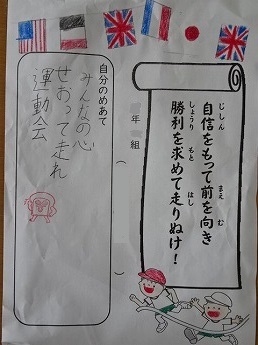 自信をもって前を向き
じしん まえ む
勝利を求めて走りぬけ！
しょうり もと はし
年 組
（ ）
自分のめあて
みんなの心
せおって走れ
運動会